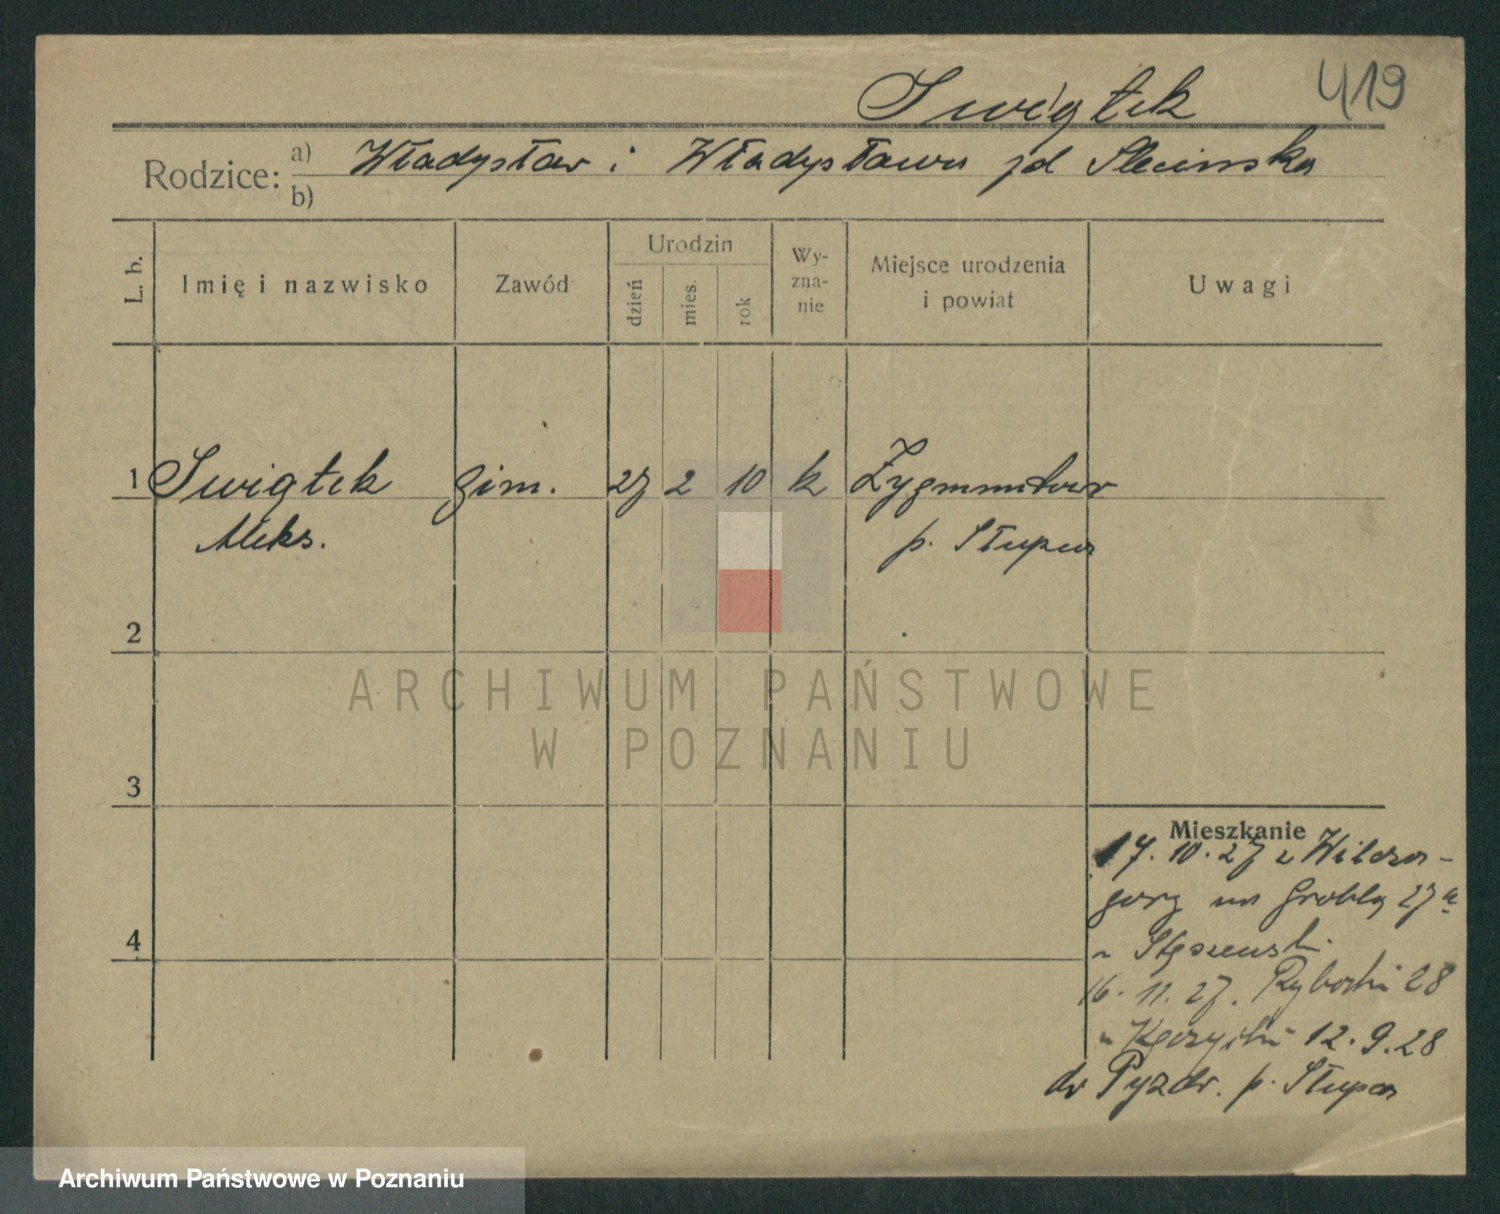 419
Świątek
Rodzice:
a) Władysław i Władysława zd
b)
L. b.
Imię i nazwisko
Zawód
Urodzin
dzień
mies.
rok
Wy-
zna-
nie
Miejsce urodzenia
i powiat
Uwagi
1 Swiątek gim. 27 2 10 k Zygmuntowo
Aleks. p. Słupca
2
3
4
Mieszkanie
17.10.27 z Wilczo-
góry na Groblą 27a
u
16.11.27. Rybaki 28
u 12.9.28
do Pyzdr. p. Słupca
ARCHIWUM PAŃSTWOWE
W POZNANIU
Archiwum Państwowe w Poznaniu